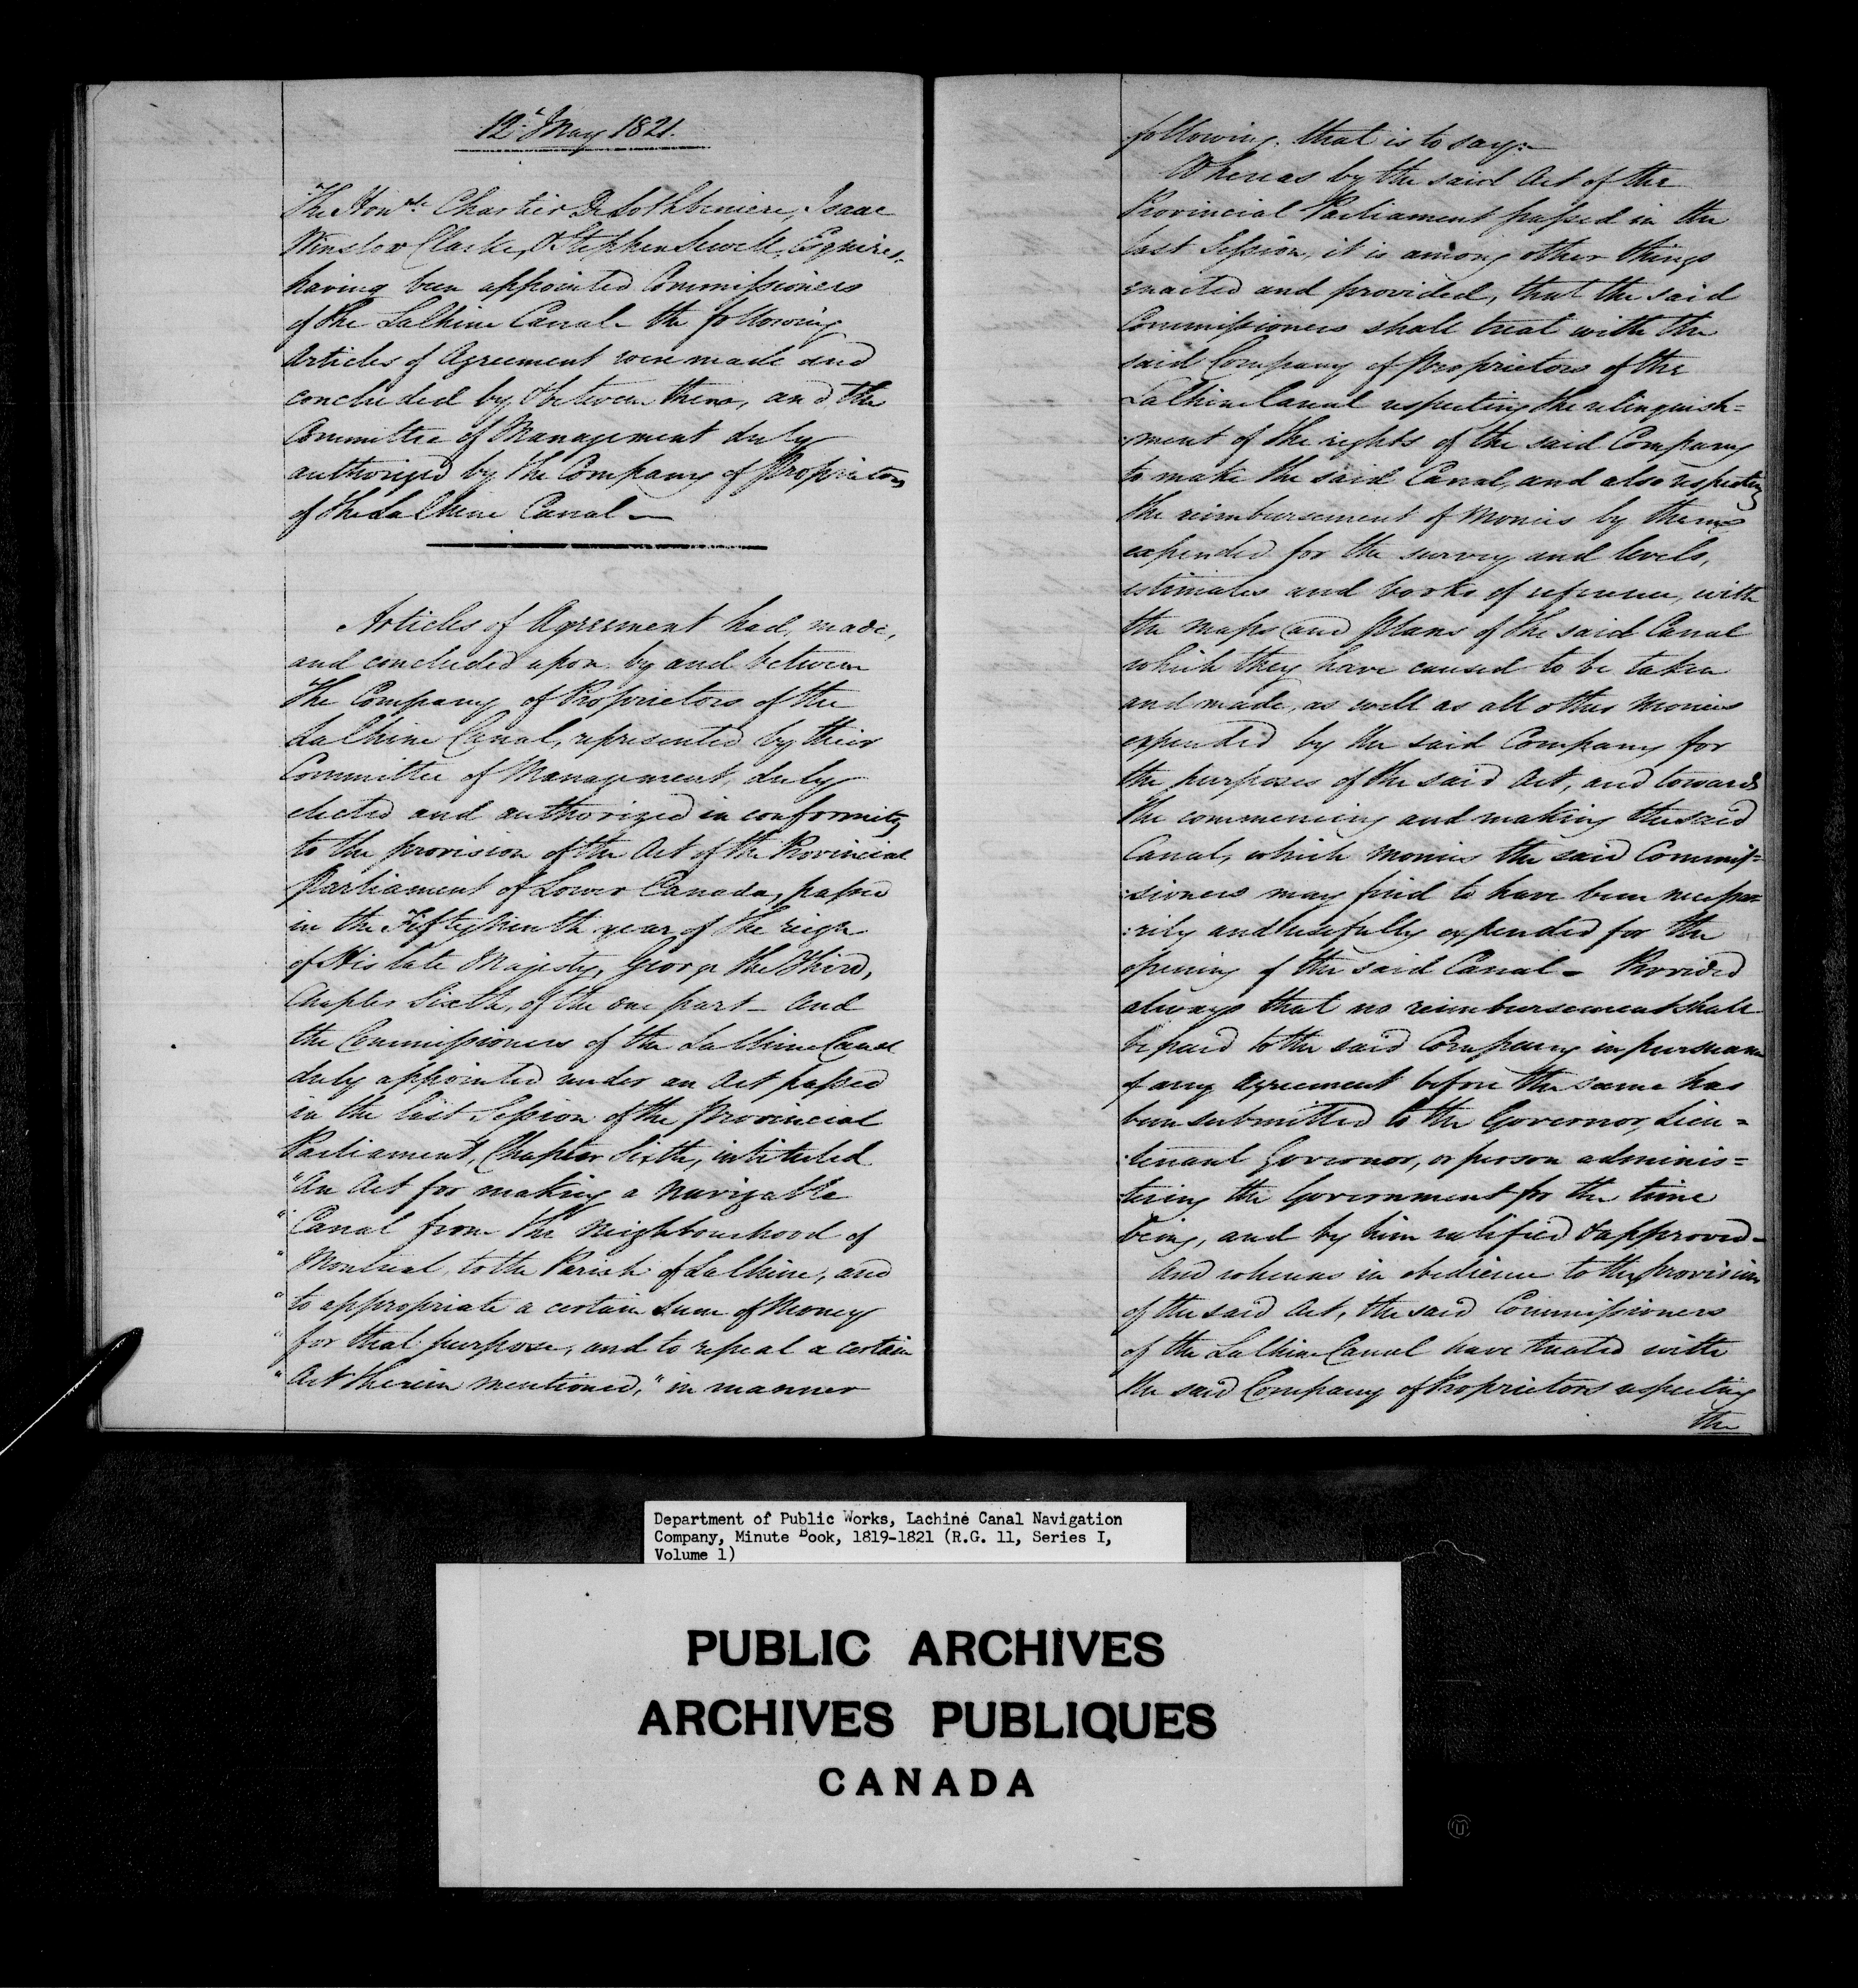 12t May 1821.
The Honble Chartier De Lothbiniere, Isaac
Winslow Clarke, & Stephen Sewell, Esquires,
having been appointed Commissioners
of the LaChine Canal - the following
Articles of Agreement were made and
concluded by & between them, and the
Committee of Management duly
authorized by the Company of Proprietors
of the LaChine Canal —
Articles of Agreement had, made,
and concluded upon by and between
The Company of Proprietors of the
LaChine Canal, represented by their
Committee of Management, duly
elected and authorized in conformity
to the provision of the Act of the Provincial
Parliament of Lower Canada, passed
in the Fifty Ninth year of the reign
of His late Majesty, George the Third,
Chapter Sixth, of the one part - And
the Commissioners of the LaChine Canal
duly appointed under an Act passed
in the last Session of the Provincial
Parliament, Chapter Sixth, intituled
"An Act for making a Navigable
" Canal from the Neighbourhood of
" Montreal, to the Parish of LaChine, and
" to appropriate a certain Sum of Money
" for that purpose, and to repeal a certain
" Act therein mentioned," in manner
following, that is to say:—
Whereas by the said Act of the
Provincial Parliament passed in the
last Session, it is among other things
enacted and provided, that the said
Commissioners shall treat with the
said Company of Proprietors of the
LaChine Canal respecting the relinquish=
:ment of the rights of the said Company
to make the said Canal, and also respecting
the reimbursement of Monies by them
expended for the survey and levels,
estimates and books of reference, with
the Maps and Plans of the said Canal
which they have caused to be taken
and made, as well as all other Monies
expended by the said Company for
the purposes of the said Act, and towards
the commencing and making the said
Canal, which Monies the said Commis=
:sioners may find to have been necessa=
:rily and usefully expended for the
opening of the said Canal - Provided
always that no reimbursement shall
be paid to the said Company in pursuance
of any Agreement before the same has
been submitted to the Governor, Lieu=
:tenant Governor, or person adminis=
:tering the Government for the time
being, and by him ratified & approved -
And whereas in obedience to the provision
of the said Act, the said Commissioners
of the LaChine Canal have treated with
the said Company of Proprietors respecting
the
Department of Public Works, Lachine Canal Navigation
Company, Minute Book, 1819-1821 (R.G. 11, Series I,
Volume 1)
PUBLIC ARCHIVES
ARCHIVES PUBLIQUES
CANADA